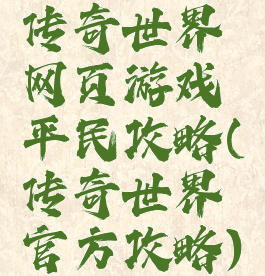 传奇世界
网页游戏
平民攻略(
传奇世界
官方攻略)